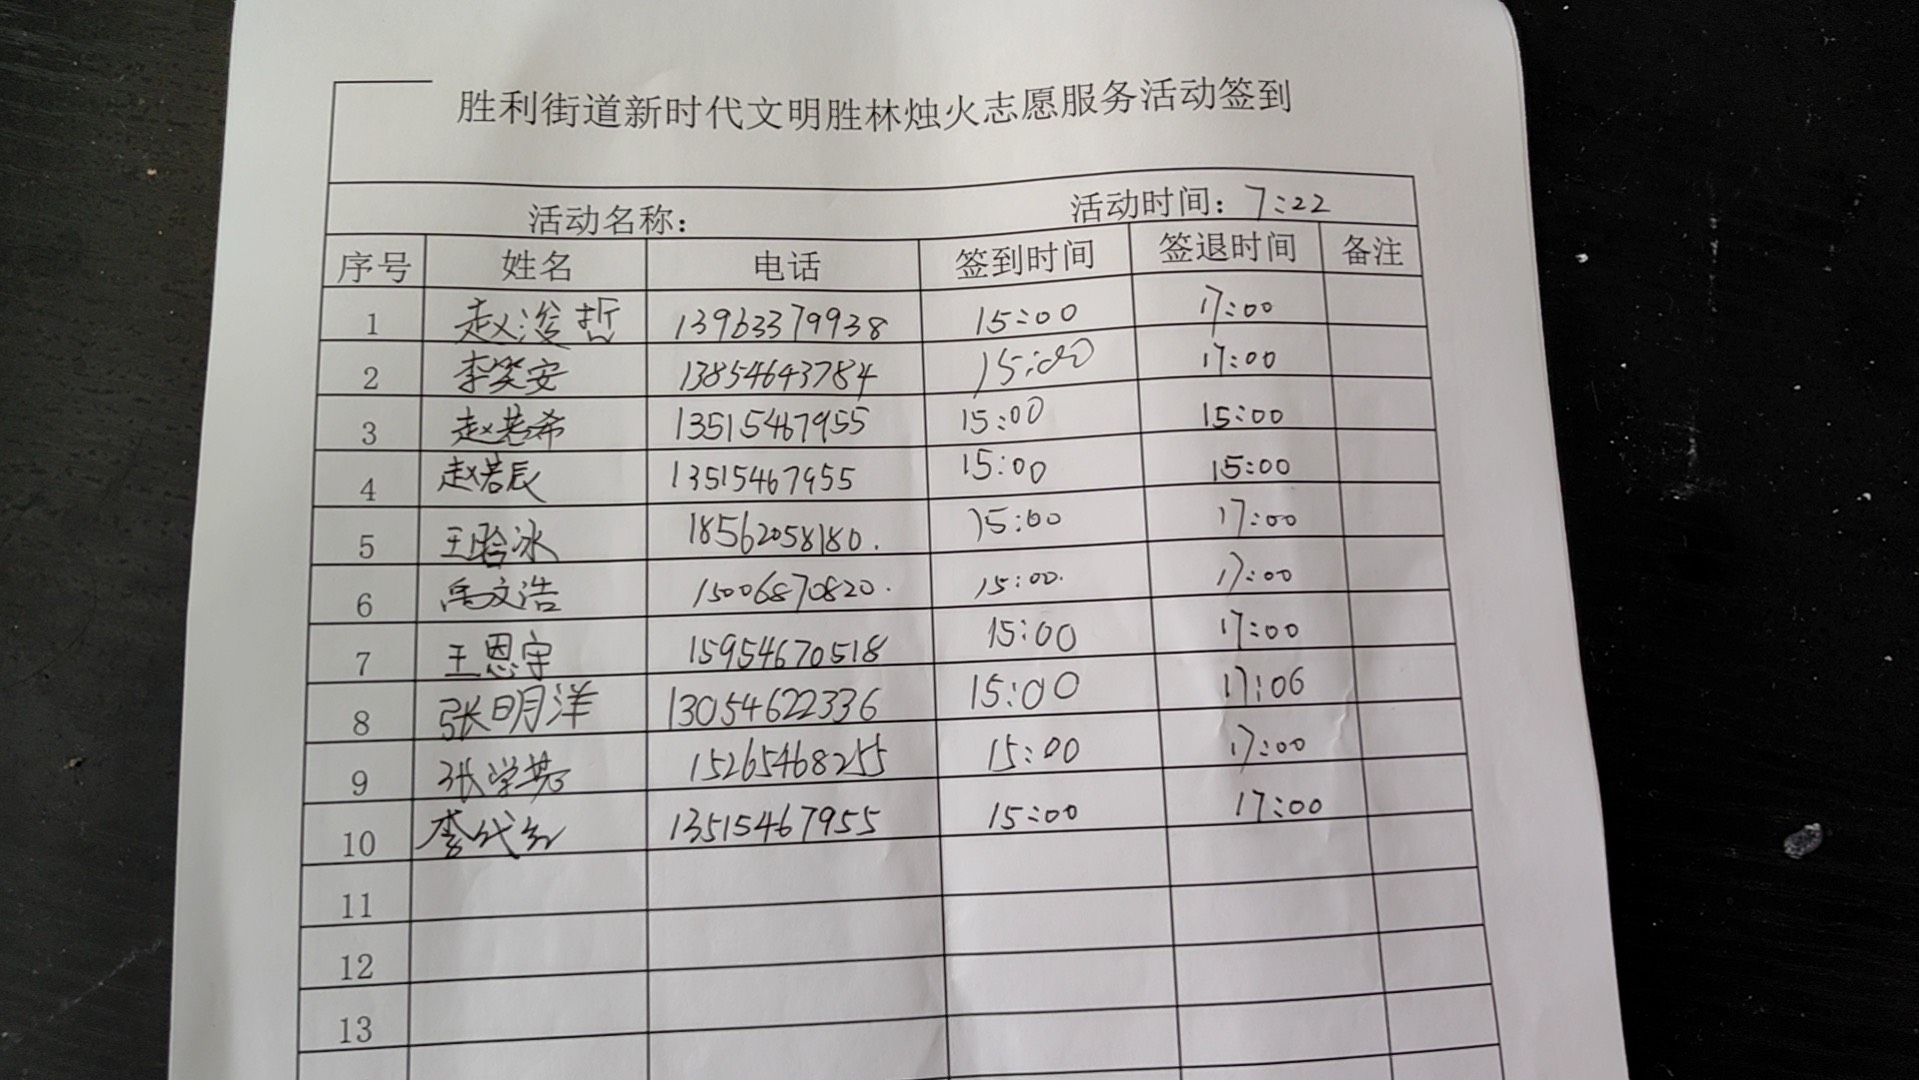 胜利街道新时代文明胜林烛火志愿服务活动签到
活动名称: 活动时间: 7:22
序号 姓名 电话 签到时间 签退时间 备注
1 赵浚哲 13963379938 15:00 17:00
2 李笑安 13854643784 15:00 17:00
3 赵若希 13515467955 15:00 15:00
4 赵若辰 13515467955 15:00 15:00
5 王晗冰 18562058180. 15:00 17:00
6 禹文浩 15006870820. 15:00. 17:00
7 王恩宇 15954670518 15:00 17:00
8 张明洋 13054622336 15:00 17:06
9 张学 15265468255 15:00 17:00
10 李代红 13515467955 15:00 17:00
11
12
13